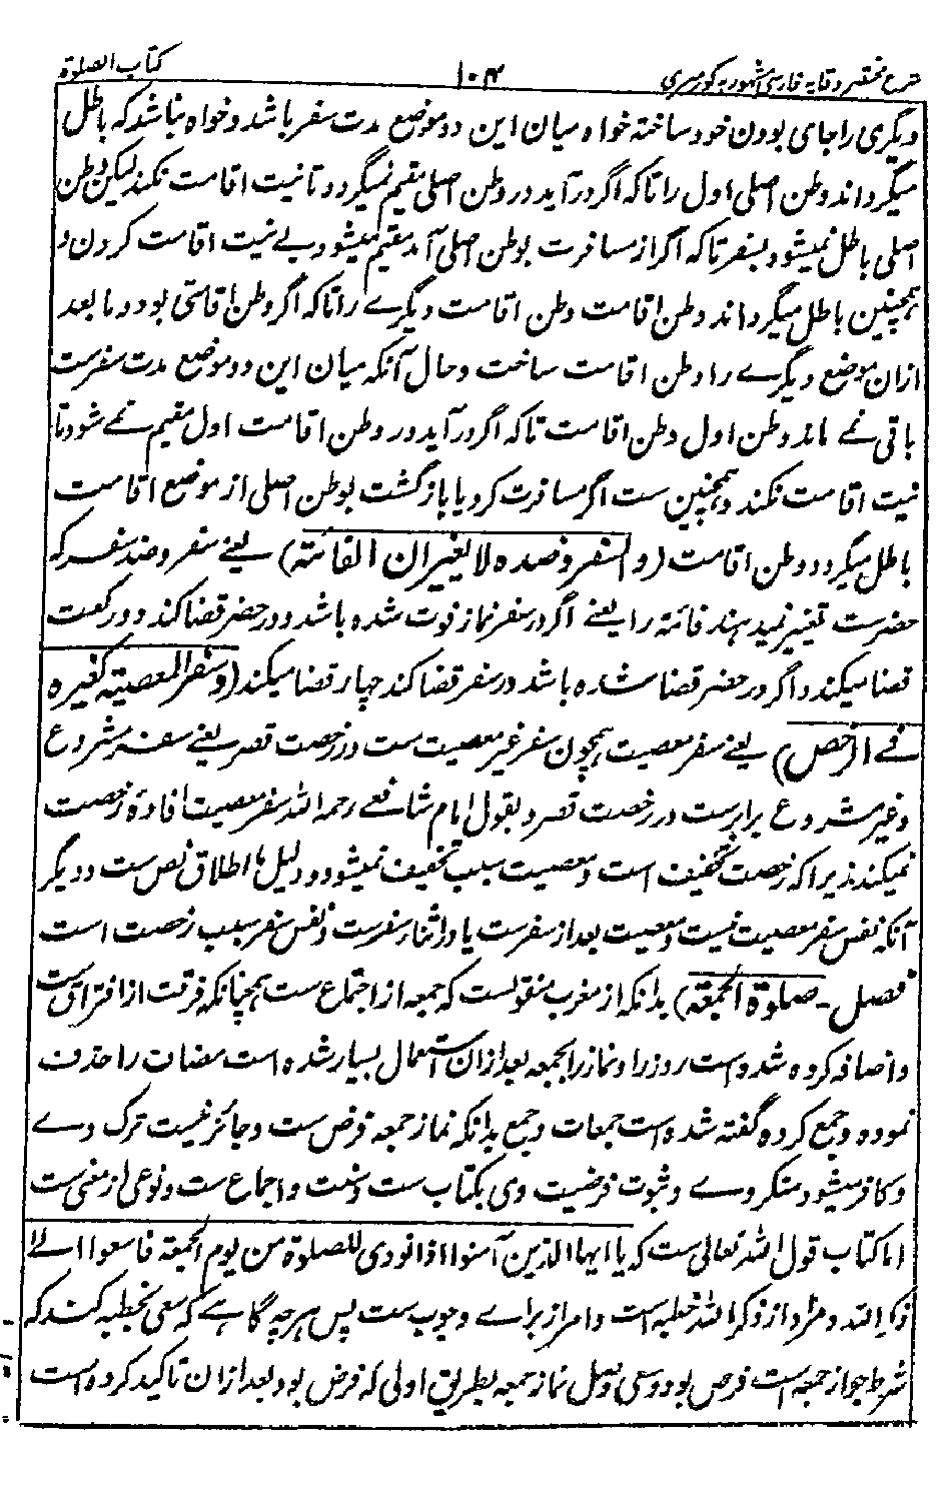 شرح مختصر وقایه فارسی مشهور به کور میری ۱۰۴ کتاب الصلوة
دیگری را جای بودن خود ساخته خواه میان این دو موضع مدت سفر باشد و خواه نباشد که باطل
میگرداند وطن اصلی اول را تا که اگر در آید در وطن اصلی مقیم نمیگردد تا نیت اقامت نکند لیکن وطن
اصلی باطل نمیشود بسفر تا که اگر از مسافرت بوطن اصلی آمد مقیم میشود بے نیت اقامت کردن و
همچنین باطل میگرداند وطن اقامت وطن اقامت دیگرے را تا که اگر وطن اقامتی بود و ما بعد
ازان موضع دیگرے را وطن اقامت ساخت و حال آنکه میان این دو موضع مدت سفرست
باقی نمے ماند وطن اول وطن اقامت تا که اگر در آید در وطن اقامت اول مقیم نمے شود تا
نیت اقامت نکند و همچنین ست اگر مسافرت کرد یا بازگشت بوطن اصلی از موضع اقامت
باطل میگردد وطن اقامت (والسفر وضده لا یغیران الفائتة) یعنے سفر و ضد سفر که
حضرست تغییر نمیدهند فائته را یعنے اگر در سفر نماز فوت شده باشد و در حضر قضا کند دو رکعت
قضا میکند و اگر در حضر قضا شده باشد در سفر قضا کند چهار قضا میکند (وسفر المعصیة کغیره
فے الرخص) یعنے سفر معصیت همچون سفر غیر معصیت ست در رخصت قصر یعنے سفر مشروع
و غیر مشروع برابرست در رخصت قصر و بقول امام شافعے رحمه الله سفر معصیت افادهٔ رخصت
نمیکند زیرا که رخصت تخفیف است و معصیت سبب تخفیف نمیشود و دلیل ما اطلاق نص ست و دیگر
آنکه نفس سفر معصیت نیست و معصیت بعد از سفرست یا در اثناء سفرست و نفس سفر سبب رخصت است
فصل - صلوة الجمعة) بدانکه از مغرب منقولست که جمعه از اجتماع ست همچنانکه فرقت از افتراق ست
و اضافه کرده شده است روز را و نماز را بجمعه بعد ازان استعمال بسیار شده است مضاف را حذف
نموده و جمع کرده گفته شده است جمعات و جمع بدانکه نماز جمعه فرض ست و جائز نیست ترک وے
و کافر میشود منکر وے و ثبوت فرضیت وی بکتاب ست و سنت و اجماع ست و نوعی از معنی ست
اما کتاب قول الله تعالی ست که یا ایها الذین آمنوا اذا نودی للصلوة من یوم الجمعة فاسعوا الے
ذکر الله و مراد از ذکر الله خطبه است و امر از براے وجوب ست پس هر چه گاہے که سعی بخطبه کنند که
شرط جواز جمعه است فرض بود و سعی اصل نماز جمعه بطریق اولی که فرض بود بعد ازان تاکید کرده است